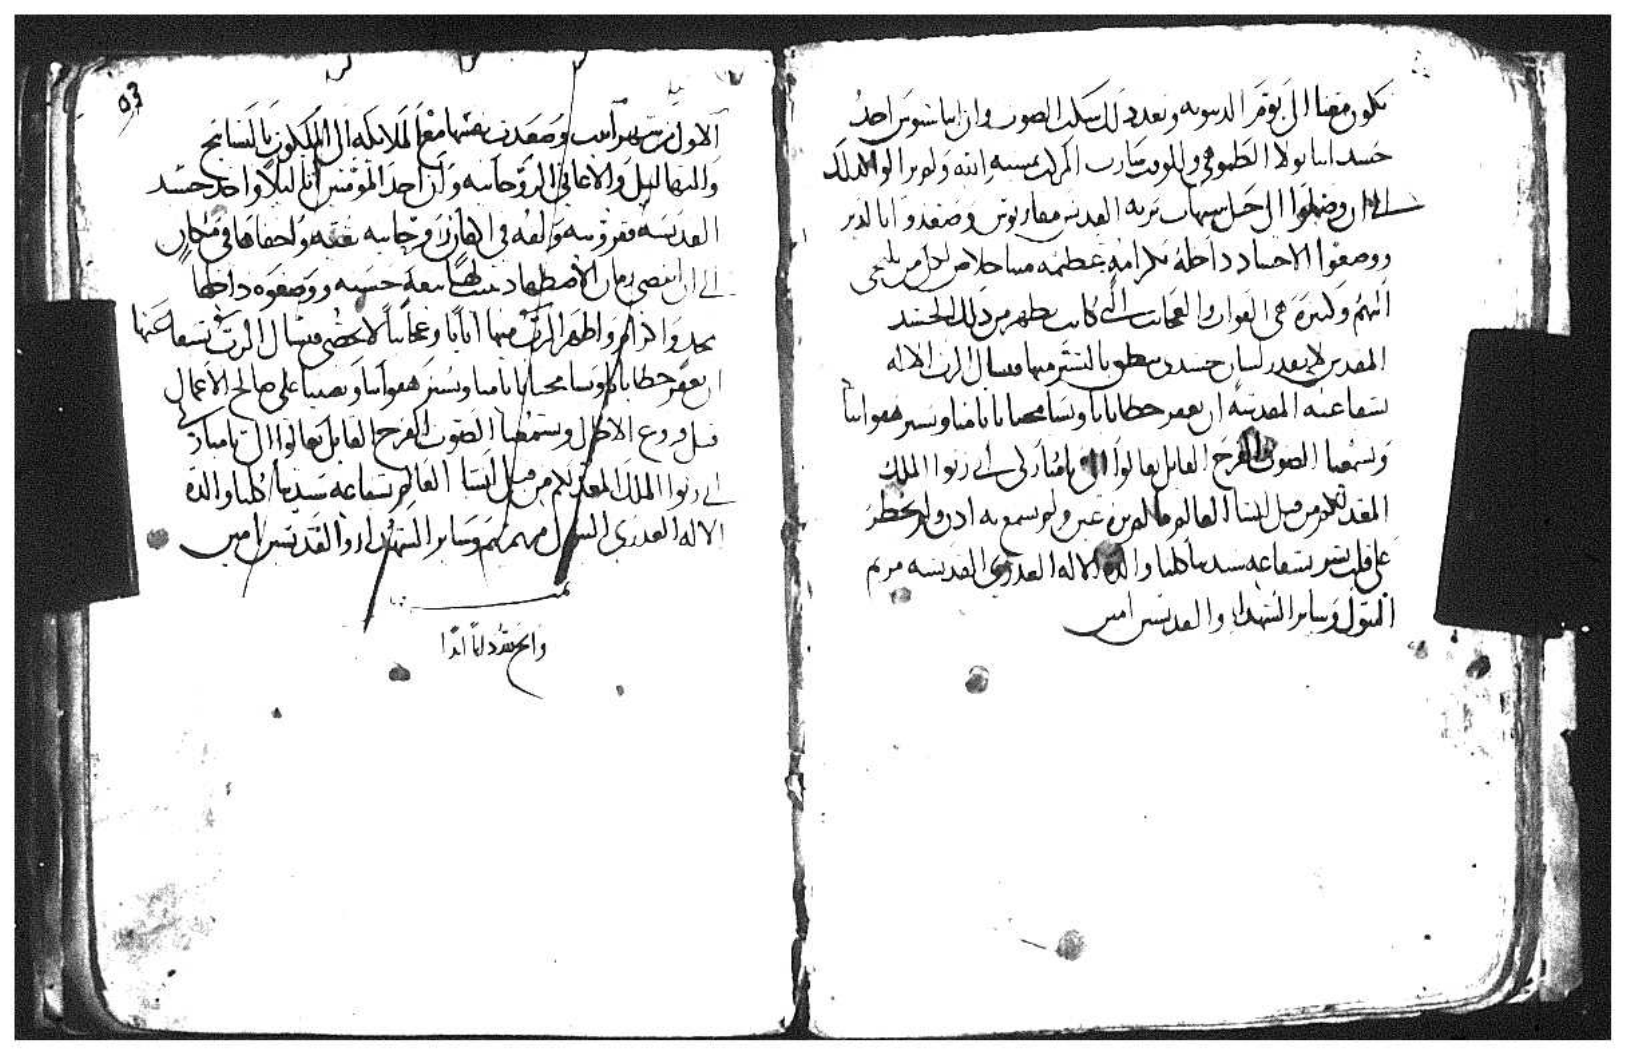 تكون معنا الى يوم الدينونه وبعد ذلك سكت الصوت وان انبا اخد
جسد انبا بولا الطموهى المركب ولم يزالوا كذلك
الى ان وصلوا الى جبل شيهات القديس مقاريوس وصعدوا الدير
ووضعوا الاجساد داخله بكرامه عظيمه من
وكثيره هى القوات والعجايب التى كانت تظهر من ذلك الجسد
المقدس لا يقدر لسان جسدى ينطق باليسير منها فنسال الرب الاله
بشفاعته المقدسه ان يغفر خطايانا ويسامحنا باثامنا ويستر هفواتنا
ويسمعنا الصوت الفرح القايل تعالوا الى يا مباركى ابى رثوا الملك
المعد لكم من قبل انشا العالم ما لم تره عين ولم تسمع به اذن ولم يخطر
على قلب بشر بشفاعة سيدتنا كلنا والدة الاله العذرى القديسه مريم
البتول وساير الشهدا والقديسين امين
الاول من شهر وصعدت نفسها مع الملايكه الى الملكوت بالتسابيح
والتهاليل والاغانى الروحانيه وان احد المومنين اتا ليلا واخد جسد
القديسه ولفه فى نقيه واخفاها فى مكان
الى ان انقضى زمان الاضطهاد بيعه حسنه ووضعوه داخلها
واظهر الرب منها ايات وعجايب لا تحصى فنسال الرب بشفاعتها
ان يغفر خطايانا ويسامحنا باثامنا ويستر هفواتنا ويعيننا على صالح الاعمال
قبل الاجال ويسمعنا الصوت الفرح القايل تعالوا الى يا مباركى
ابى رثوا الملك المعد لكم من قبل انشا العالم بشفاعة سيدتنا كلنا والدة
الاله العذرى البتول مرتمريم وساير الشهداء والقديسين امين
والمجد لله دايما ابدا